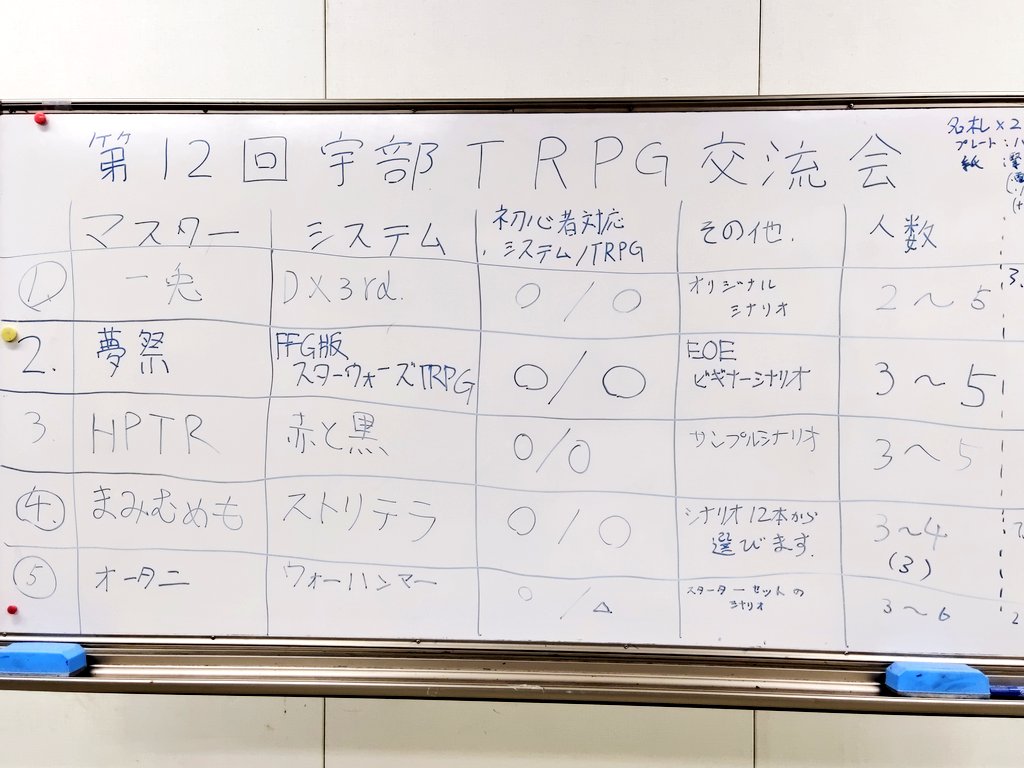 第12回宇部TRPG交流会
名札×2
プレート:
紙:
マスター システム 初心者対応 その他. 人数
システム/TRPG
① 一兎 DX3rd. ○/○ オリジナル 2〜5
シナリオ
2. 夢祭 FFG版 ○/○ EOE 3〜5
スターウォーズTRPG ビギナーシナリオ
3. HPTR 赤と黒 ○/○ サンプルシナリオ 3〜5
④. まみむめも ストリテラ ○/○ シナリオ12本から 3〜4
選びます. (3)
⑤ オータニ ウォーハンマー ○/△ スターターセットの 3〜6
シナリオ